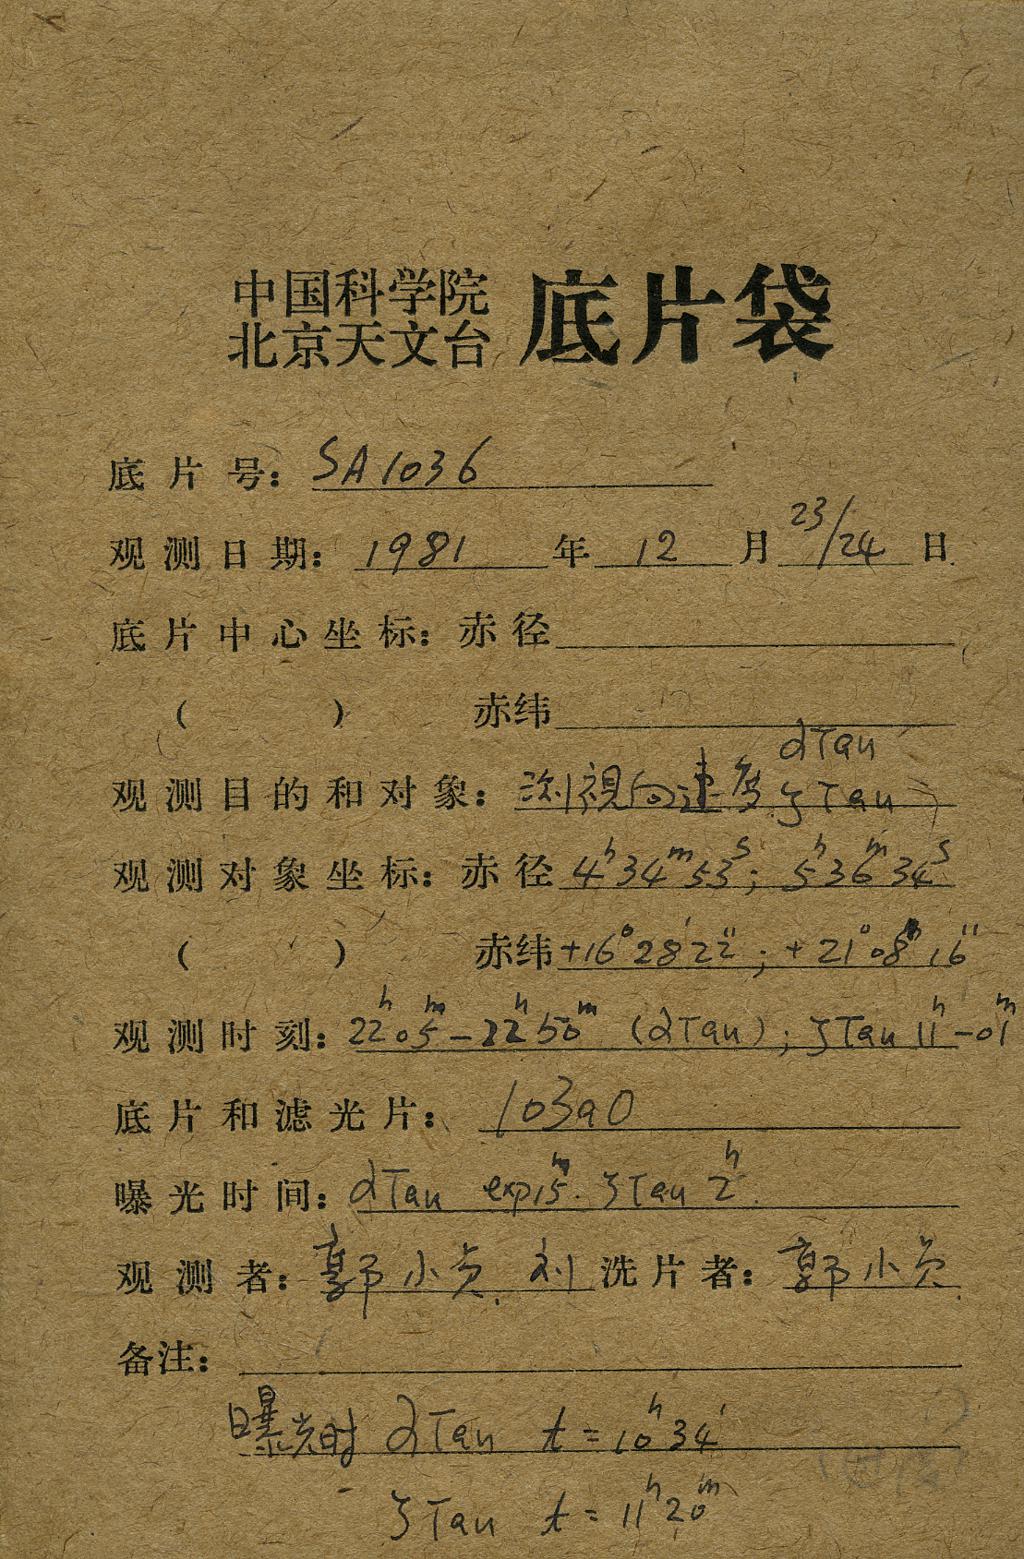 中国科学院
北京天文台 底片袋
底片号: SA1036
观测日期: 1981 年 12 月 23/24 日
底片中心坐标: 赤径
( ) 赤纬
αTau
观测目的和对象: 测视向速度 ζTau
观测对象坐标: 赤径 4ʰ34ᵐ53ˢ; 5ʰ36ᵐ34ˢ
( ) 赤纬 +16°28′22″; +21°08′16″
观测时刻: 22ʰ05ᵐ-22ʰ50ᵐ (αTau); ζTau 11ʰ-01ᵐ
底片和滤光片: 103aO
曝光时间: αTau exp15ᵐ. ζTau 2ʰ.
观测者: 郭小贞. 刘 洗片者: 郭小贞.
备注:
曝光时 αTau t=10ʰ34′
ζTau t=11ʰ20ᵐ